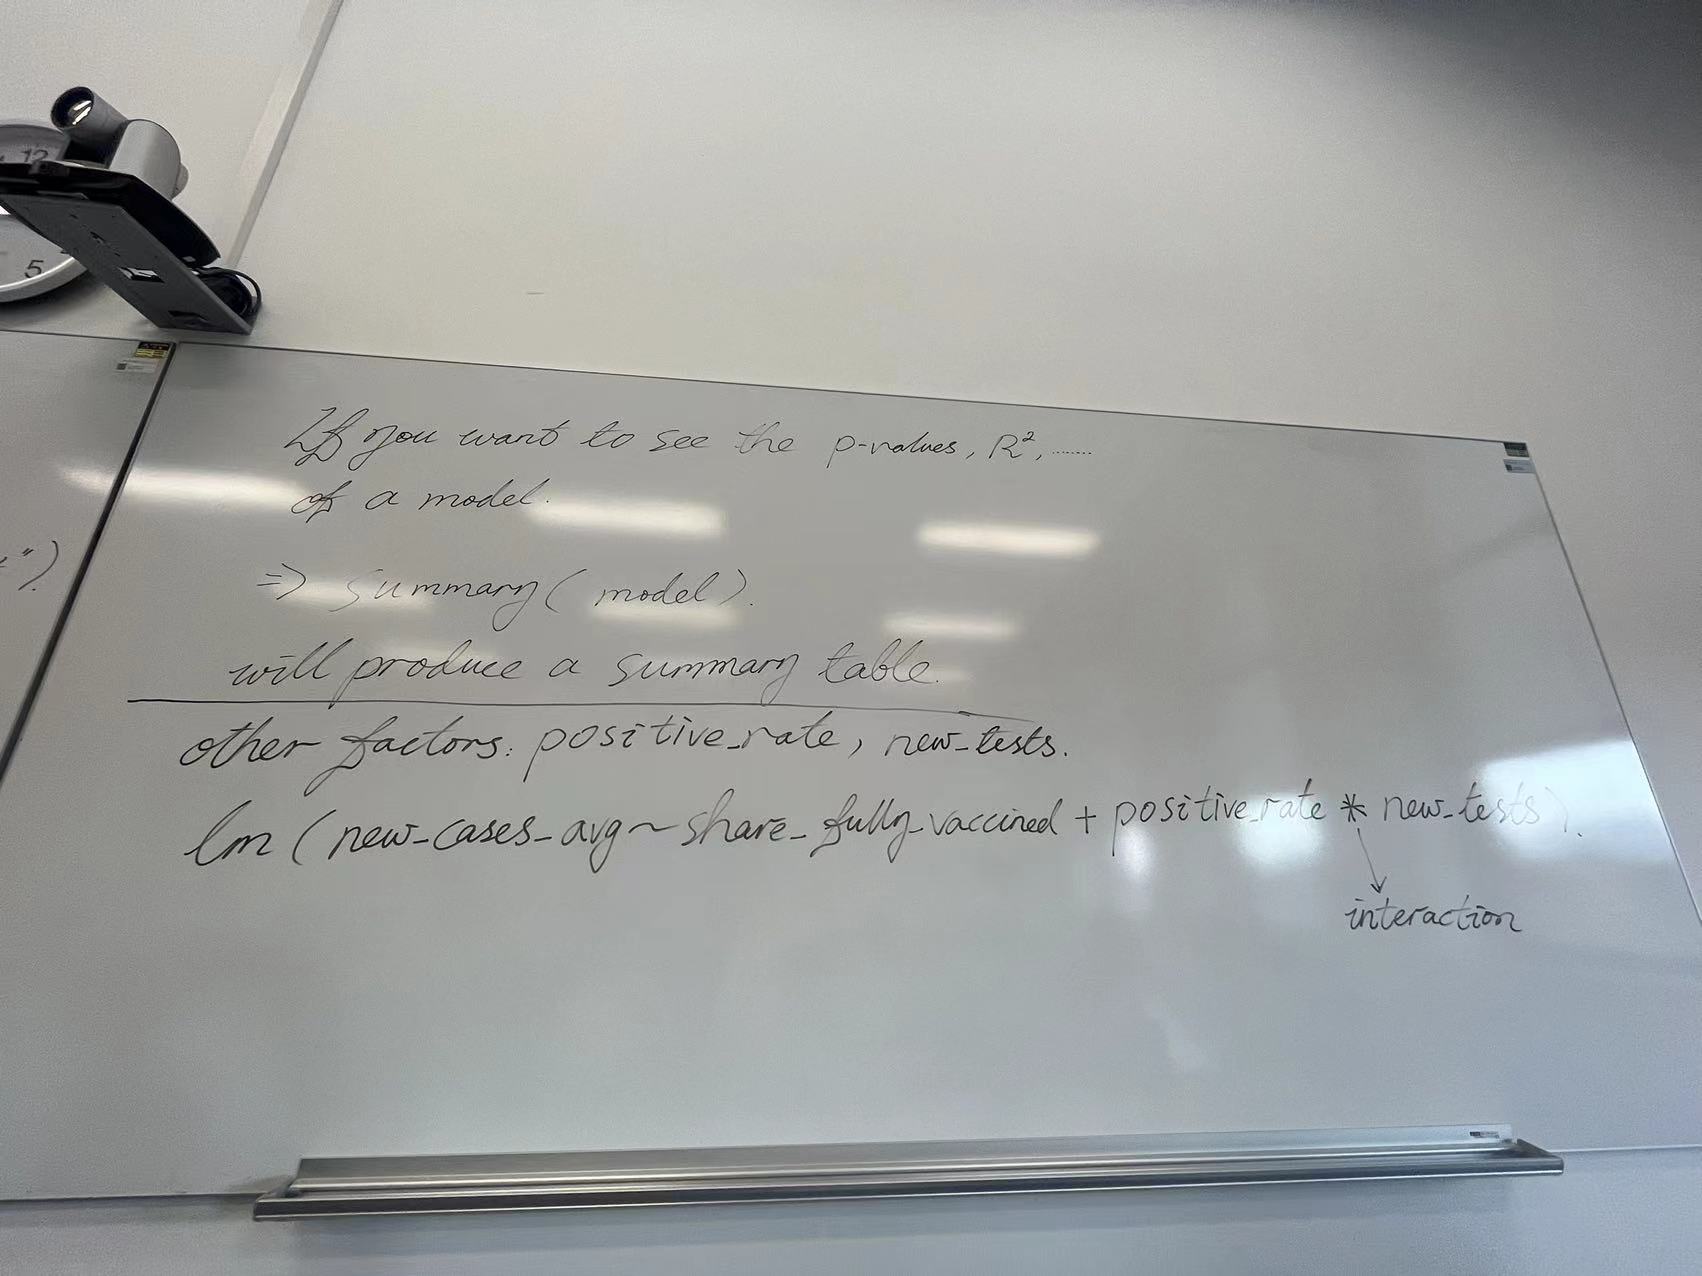 12
5
")
If you want to see the p-values, R², ........
of a model.
=> summary( model).
will produce a summary table.
other factors: positive_rate, new_tests.
lm ( new_cases_avg ~ share_fully_vaccined + positive_rate * new_tests ).
interaction